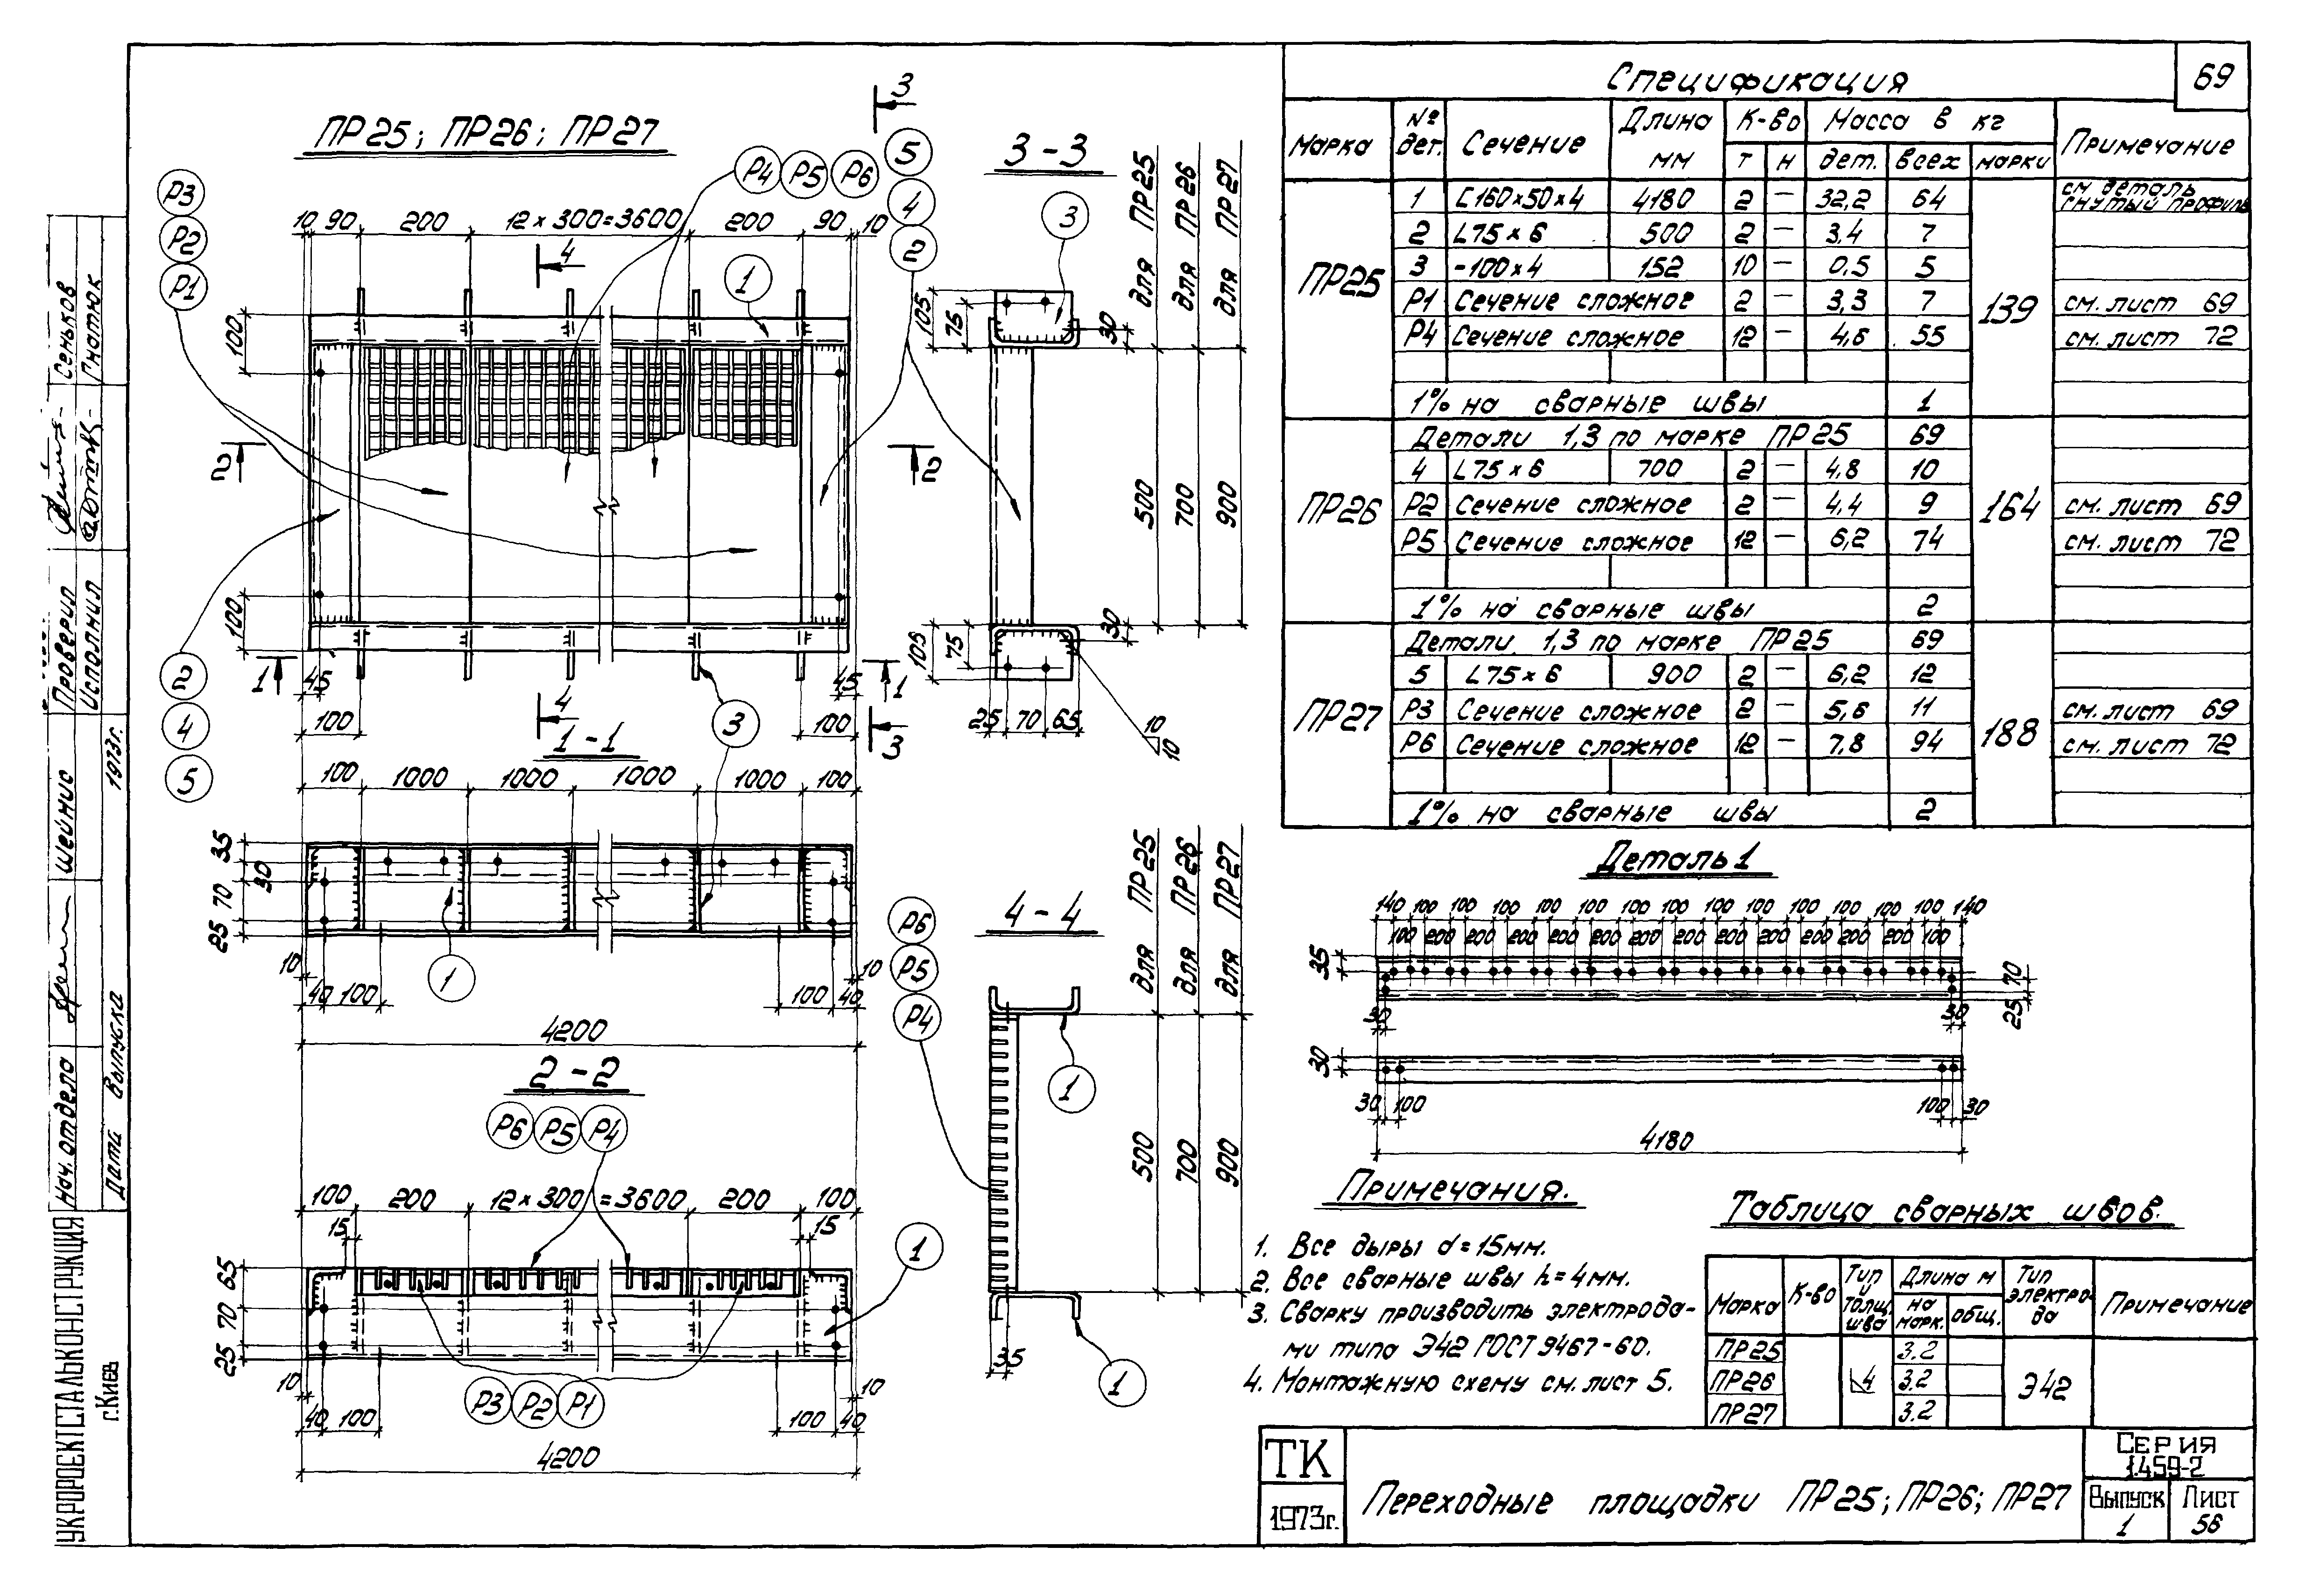 69
Спецификация
Марка № дет. Сечение Длина мм К-во Масса в кг Примечание
т н дет. всех марки
ПР25 139
1 [160×50×4 4180 2 – 32,2 64 см деталь гнутый профиль
2 L75×6 500 2 – 3,4 7
3 -100×4 152 10 – 0,5 5
Р1 Сечение сложное 2 – 3,3 7 см. лист 69
Р4 Сечение сложное 12 – 4,6 55 см. лист 72
1% на сварные швы 1
ПР26 164
Детали 1,3 по марке ПР25 69
4 L75×6 700 2 – 4,8 10
Р2 Сечение сложное 2 – 4,4 9 см. лист 69
Р5 Сечение сложное 12 – 6,2 74 см. лист 72
1% на сварные швы 2
ПР27 188
Детали. 1,3 по марке ПР25 69
5 L75×6 900 2 – 6,2 12
Р3 Сечение сложное 2 – 5,6 11 см. лист 69
Р6 Сечение сложное 12 – 7,8 94 см. лист 72
1% на сварные швы 2
ПР25; ПР26; ПР27
3
Р4 Р5 Р6 5
Р3 4
Р2 2
Р1
10 90 200 12×300=3600 200 90 10
4
1
100
2 2
100
2
4
5
1 45 45 1
100 4 3 100 3
3-3
для ПР25
для ПР26
для ПР27
3
105 75 30
500 700 900
105 75 30
25 70 65
10
10
1-1
100 1000 1000 1000 1000 100
35 30 70 25
1
10 10
40 100 100 40
4200
2-2
Р6 Р5 Р4
100 200 12×300=3600 200 100
15 15
1
65 70 25
Р3 Р2 Р1
10 10
40 100 100 40
4200
4-4
для ПР25
для ПР26
для ПР27
Р6
Р5
Р4
1
500 700 900
35
1
Деталь 1
140 100 100 100 100 100 100 100 100 100 100 100 100 100 140
100 200 200 200 200 200 200 200 200 200 200 200 200 100
35 70
25
30 30
30
30 100 100 30
4180
Примечания.
1. Все дыры d=15мм.
2. Все сварные швы h=4мм.
3. Сварку производить электрода-
ми типа Э42 ГОСТ 9467-60.
4. Монтажную схему см. лист 5.
Таблица сварных швов.
Марка К-во Тип и толщ. шва Длина м Тип электро-да Примечание
на марк. общ.
ПР25 3.2
ПР26 4 3.2 Э42
ПР27 3.2
ТК
1973г.
Переходные площадки ПР25; ПР26; ПР27
Серия
1.459-2
Выпуск Лист
1 56
УКРПРОЕКТСТАЛЬКОНСТРУКЦИЯ
г.Киев
Нач. отдела Шейнис
Дата выпуска 1973г.
Проверил Сеньков
Исполнил Гнатюк